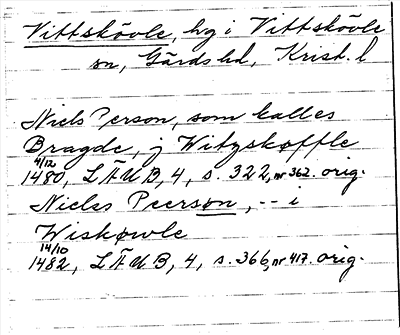 Vittskövle, hg i Vittskövle
sn, Gärds hd, Krist. l
Niels Person, som kalles
Bragde, j Witzskøffle
4/12
1480, LÄUB, 4, s. 322, nr 362. orig.
Nieles Peerson, -- i
Wiskøwle
14/10
1482, LÄUB, 4, s. 366, nr 417. orig.